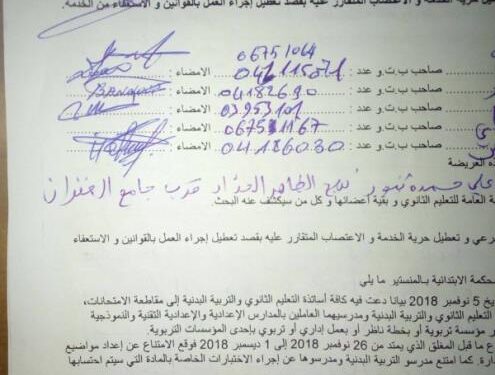 حرية الخدمة و الاعتصاب المتقارر عليه بقصد تعطيل إجراء العمل بالقوانين و الاستعفاء من الخدمة.
06751064
صاحب ب.ت.و عدد : 041115071 الامضاء :
صاحب ب.ت.و عدد : 04182690 الامضاء :
صاحب ب.ت.و عدد : 03953101 الامضاء :
صاحب ب.ت.و عدد : 06751167 الامضاء :
صاحب ب.ت.و عدد : 04186030 الامضاء :
العريضة
نهج الطاهر الحداد قرب جامع الغفران
العامة للتعليم الثانوي و بقية أعضائها و كل من سيكشف عنه البحث.
و تعطيل حرية الخدمة و الاعتصاب المتقارر عليه بقصد تعطيل إجراء العمل بالقوانين و الاستعفاء
الابتدائية بالمنستير ما يلي
5 نوفمبر 2018 بيانا دعت فيه كافة أساتذة التعليم الثانوي والتربية البدنية إلى مقاطعة الامتحانات،
الثانوي والتربية البدنية ومدرسيهما العاملين بالمدارس الإعدادية والإعدادية التقنية والنموذجية
مؤسسة تربوية أو بخطة ناظر أو بعمل إداري أو تربوي بإحدى المؤسسات التربوية.
ما قبل المغلق الذي يمتد من 26 نوفمبر 2018 إلى 1 ديسمبر 2018 فوقع الامتناع عن إعداد مواضيع
كما امتنع مدرسو التربية البدنية ومدرسوها عن إجراء الاختبارات الخاصة بالمادة التي سيتم احتسابها